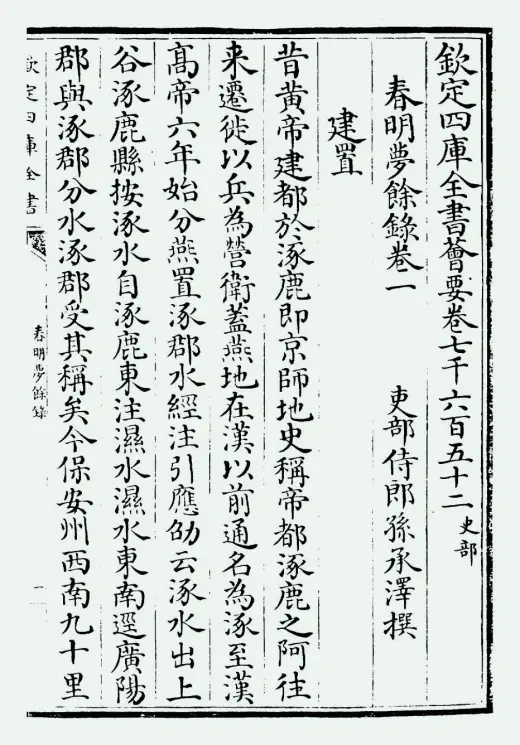 欽定四庫全書薈要卷七千六百五十二 史部
春明夢餘錄卷一 吏部侍郎孫承澤撰
建置
昔黄帝建都於涿鹿即京師地史稱帝都涿鹿之阿往
来遷徙以兵為營衛蓋燕地在漢以前通名為涿至漢
髙帝六年始分燕置涿郡水經注引應劭云涿水出上
谷涿鹿縣按涿水自涿鹿東注濕水濕水東南逕廣陽
郡與涿郡分水涿郡受其稱矣今保安州西南九十里
欽定四庫全書
春明夢餘錄
一